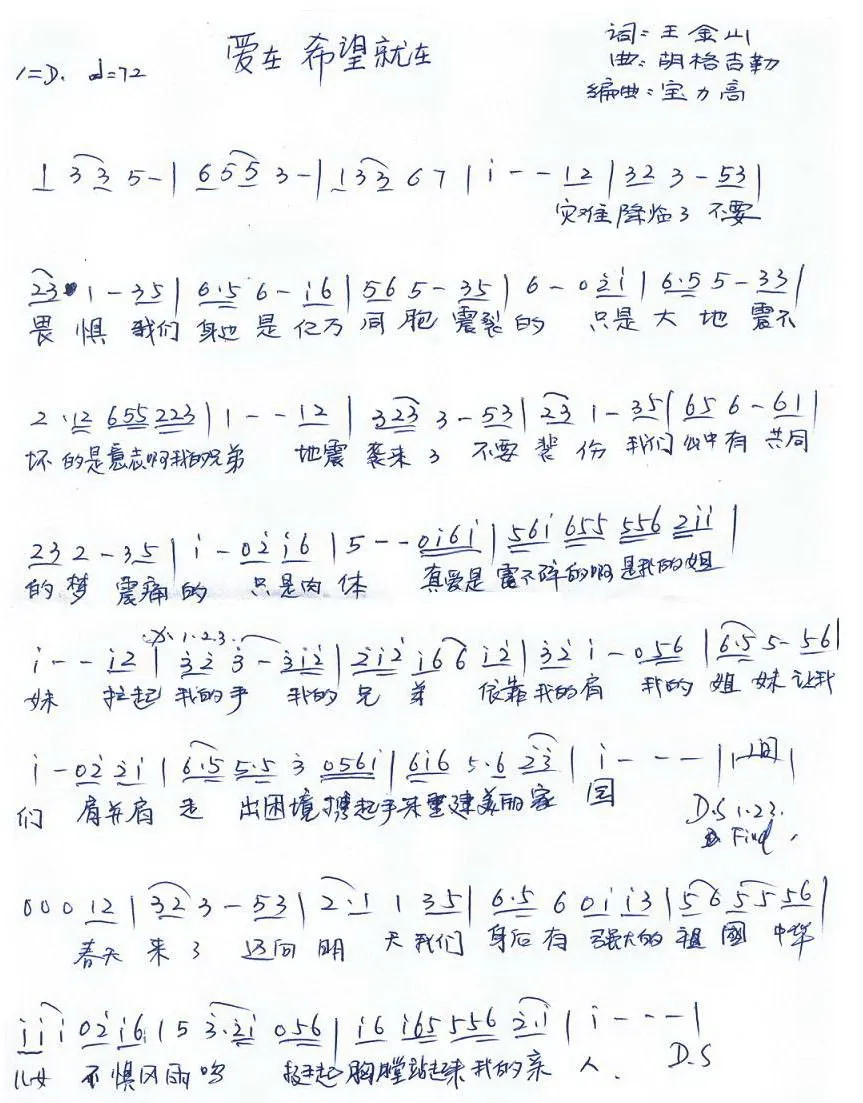 爱在 希望就在
词: 王金山
1=D. d=72
曲: 胡格吉勒
编曲: 宝力高
1 3 3 5 - | 6 5 5 3 - | 1 3 3 6 7 | i - - 1 2 | 3 2 3 - 5 3 |
灾难降临了 不要
2 3 1 - 3 5 | 6·5 6 - i 6 | 5 6 5 - 3 5 | 6 - 0 2 i | 6·5 5 - 3 3 |
畏惧 我们 身边 是 亿万 同胞 震裂的 只是 大地 震不
2·1 2 6 5 5 2 2 3 | 1 - - 1 2 | 3 2 3 3 - 5 3 | 2 3 1 - 3 5 | 6 5 6 - 6 1 |
坏的是意志啊我的兄弟 地震 袭来了 不要 我们 心中有 共同
2 3 2 - 3 5 | i - 0 2 i 6 | 5 - - 0 i 6 i | 5 6 i 6 5 5 5 5 6 2 i i |
的梦 震痛的 只是肉体 真爱是震不碎的啊是我的姐
1.2.3.
i - - i 2 | 3 2 3 - 3 i 2 | 2 i 2 i 6 6 i 2 | 3 2 i - 0 5 6 | 6·5 5 - 5 6 |
妹 拉起 我的手 我的 兄弟 依靠我的肩 我的 姐妹 让我
i - 0 2 2 i | 6·5 5·5 3 0 5 6 i | 6 i 6 5·6 2 3 | i - - - | |
们 肩并肩 走 出困境 携起手来重建美丽家 国
D.S 1.2.3.
0 0 0 1 2 | 3 2 3 - 5 3 | 2·1 1 3 5 | 6·5 6 0 i i 3 | 5 6 5 5 5 6 |
春天 来了 迈向 明天 我们 身后有 强大的 祖國 中华
i i i 0 2 i 6 | 5 3·2 i 0 5 6 | i 6 i 6 5 5 5 6 2·i | i - - - |
儿女 不惧风雨 挺起 胸膛站起来我的亲 人. D.S